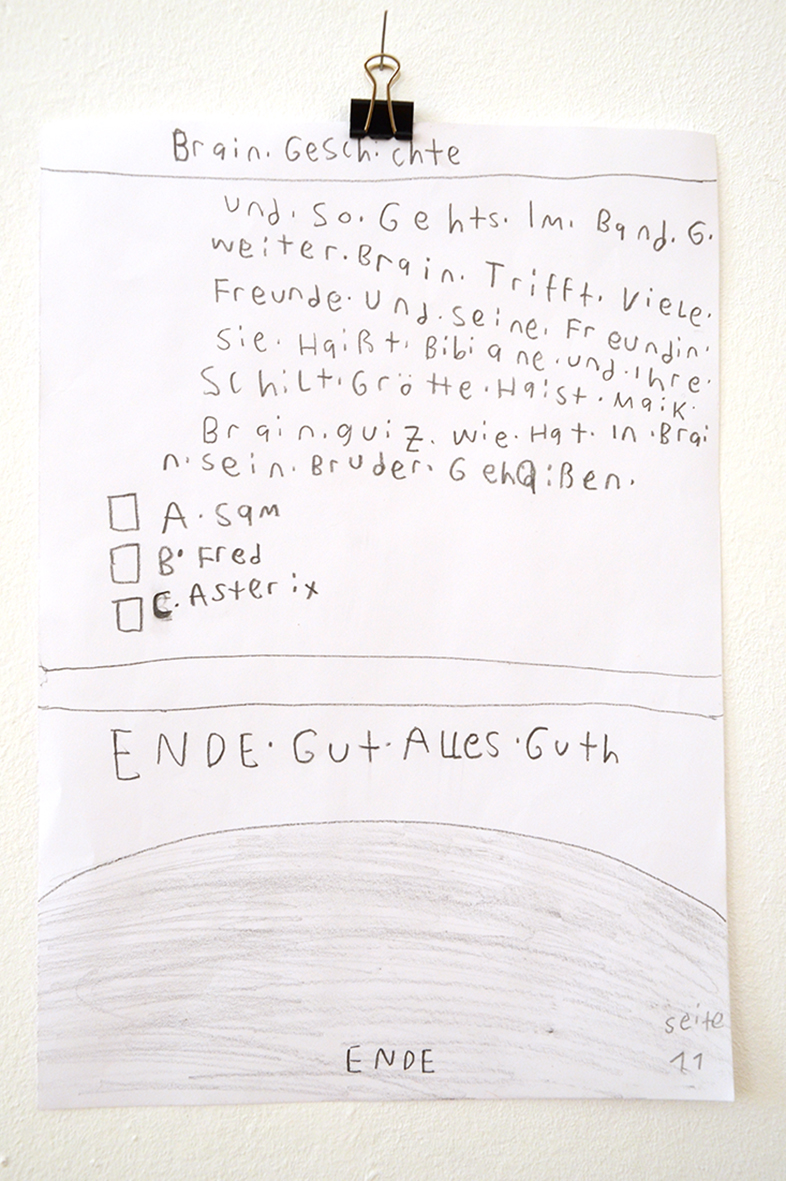 Brain. Geschichte
und. So. Gehts. Im. Band. G.
weiter. Brain. Trifft. Viele.
Freunde. Und. Seine. Freundin.
Sie. Haißt. Bibiane. und. Ihre.
Schilt. Grötte. Haist. Maik.
Brain. quiz. wie. Hat. In. Brai
n. sein. Bruder. Gehaißen.
A. Sam
B. Fred
C. Asterix
ENDE. Gut. Alles. Guth
seite
ENDE 11